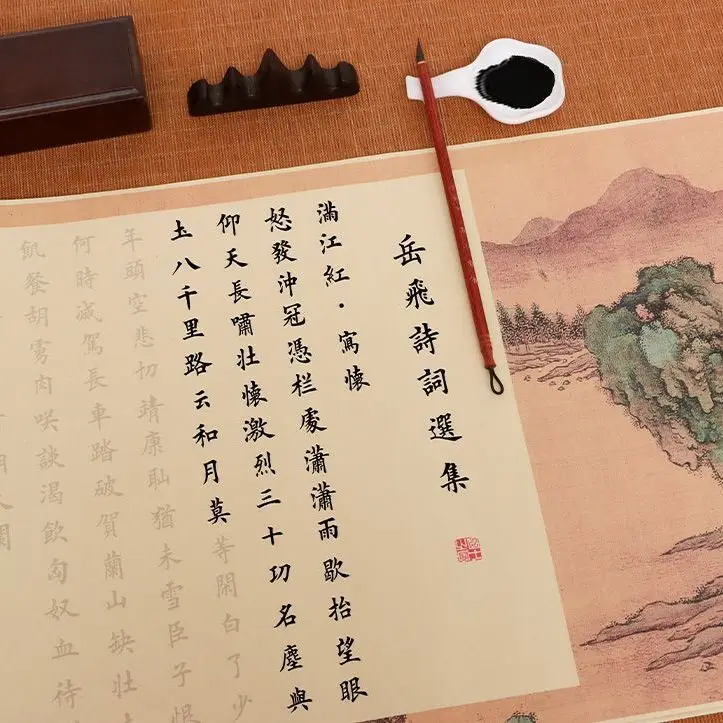 岳飛詩詞選集
滿江紅·寫懷
怒發沖冠憑栏處瀟瀟雨歇抬望眼
仰天長嘯壯懷激烈三十功名塵與
圡八千里路云和月莫等閑白了少
年頭空悲切靖康恥猶未雪臣子恨
何時滅駕長車踏破賀蘭山缺壮
飢餐胡虜肉咲談渴飲匈奴血待